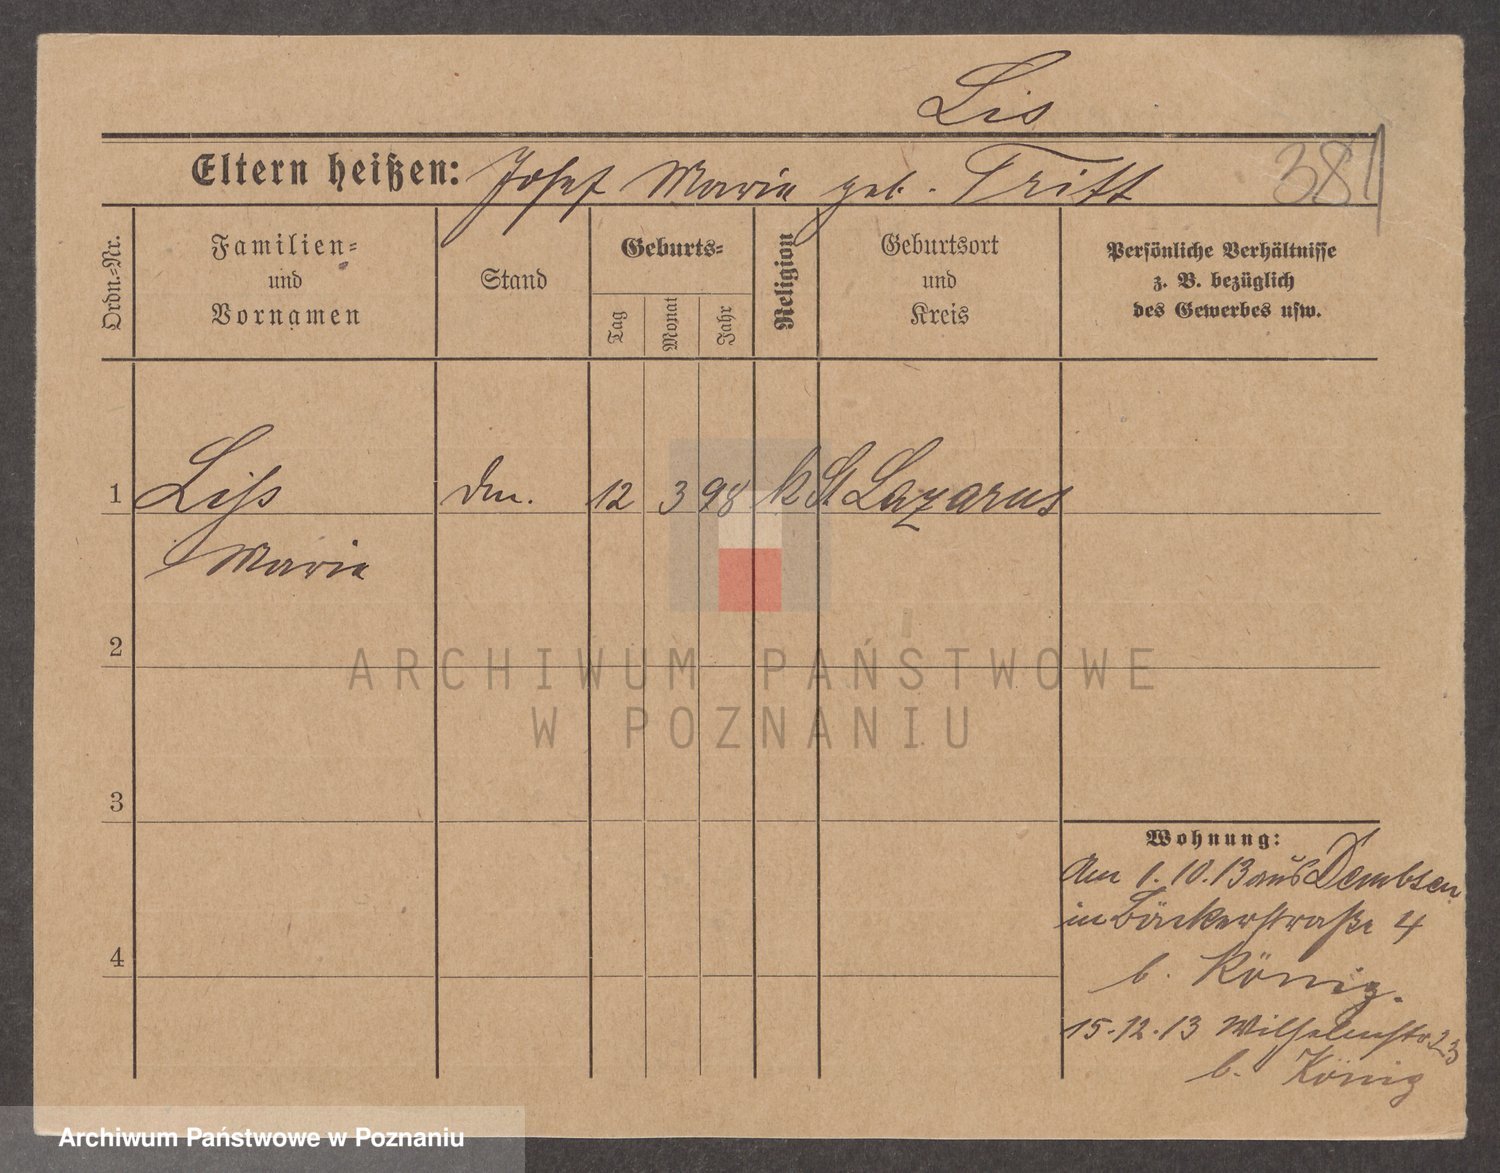 Lis
Eltern heißen: Josef Marie geb. Tritt
381
Ordn.=Nr.
Familien=
und
Vornamen
Stand
Geburts=
Tag
Monat
Jahr
Religion
Geburtsort
und
Kreis
Persönliche Verhältnisse
z. B. bezüglich
des Gewerbes usw.
1 Liss 12 3 98 k St. Lazarus
Marie
2
3
4
Wohnung:
Am 1.10.13 aus Dembsen
in Bäckerstraße 4
b. König.
15.12.13 Wilhelmstr. 23
b. König
ARCHIWUM PAŃSTWOWE
W POZNANIU
Archiwum Państwowe w Poznaniu